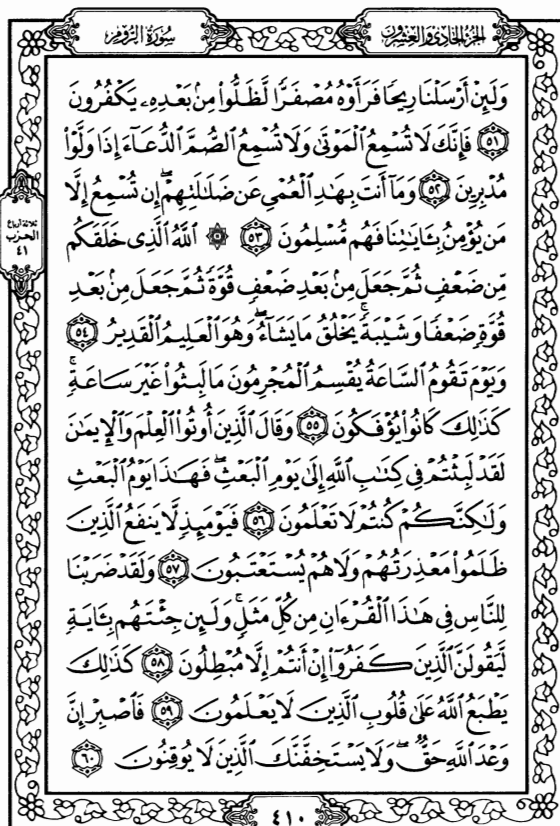 الجزء الحادي والعشرون
سورة الروم
وَلَئِنْ أَرْسَلْنَا رِيحًا فَرَأَوْهُ مُصْفَرًّا لَّظَلُّوا۟ مِنۢ بَعْدِهِۦ يَكْفُرُونَ
﴿٥١﴾ فَإِنَّكَ لَا تُسْمِعُ ٱلْمَوْتَىٰ وَلَا تُسْمِعُ ٱلصُّمَّ ٱلدُّعَآءَ إِذَا وَلَّوْا۟
مُدْبِرِينَ ﴿٥٢﴾ وَمَآ أَنتَ بِهَٰدِ ٱلْعُمْىِ عَن ضَلَٰلَتِهِمْ ۖ إِن تُسْمِعُ إِلَّا
مَن يُؤْمِنُ بِـَٔايَٰتِنَا فَهُم مُّسْلِمُونَ ﴿٥٣﴾ ۞ ٱللَّهُ ٱلَّذِى خَلَقَكُم
مِّن ضَعْفٍ ثُمَّ جَعَلَ مِنۢ بَعْدِ ضَعْفٍ قُوَّةً ثُمَّ جَعَلَ مِنۢ بَعْدِ
قُوَّةٍ ضَعْفًا وَشَيْبَةً ۚ يَخْلُقُ مَا يَشَآءُ ۖ وَهُوَ ٱلْعَلِيمُ ٱلْقَدِيرُ ﴿٥٤﴾
وَيَوْمَ تَقُومُ ٱلسَّاعَةُ يُقْسِمُ ٱلْمُجْرِمُونَ مَا لَبِثُوا۟ غَيْرَ سَاعَةٍ ۚ
كَذَٰلِكَ كَانُوا۟ يُؤْفَكُونَ ﴿٥٥﴾ وَقَالَ ٱلَّذِينَ أُوتُوا۟ ٱلْعِلْمَ وَٱلْإِيمَٰنَ
لَقَدْ لَبِثْتُمْ فِى كِتَٰبِ ٱللَّهِ إِلَىٰ يَوْمِ ٱلْبَعْثِ ۖ فَهَٰذَا يَوْمُ ٱلْبَعْثِ
وَلَٰكِنَّكُمْ كُنتُمْ لَا تَعْلَمُونَ ﴿٥٦﴾ فَيَوْمَئِذٍ لَّا يَنفَعُ ٱلَّذِينَ
ظَلَمُوا۟ مَعْذِرَتُهُمْ وَلَا هُمْ يُسْتَعْتَبُونَ ﴿٥٧﴾ وَلَقَدْ ضَرَبْنَا
لِلنَّاسِ فِى هَٰذَا ٱلْقُرْءَانِ مِن كُلِّ مَثَلٍ ۚ وَلَئِن جِئْتَهُم بِـَٔايَةٍ
لَّيَقُولَنَّ ٱلَّذِينَ كَفَرُوٓا۟ إِنْ أَنتُمْ إِلَّا مُبْطِلُونَ ﴿٥٨﴾ كَذَٰلِكَ
يَطْبَعُ ٱللَّهُ عَلَىٰ قُلُوبِ ٱلَّذِينَ لَا يَعْلَمُونَ ﴿٥٩﴾ فَٱصْبِرْ إِنَّ
وَعْدَ ٱللَّهِ حَقٌّ ۖ وَلَا يَسْتَخِفَّنَّكَ ٱلَّذِينَ لَا يُوقِنُونَ ﴿٦٠﴾
ثلاثة أرباع
الحزب
٤١
٤١٠